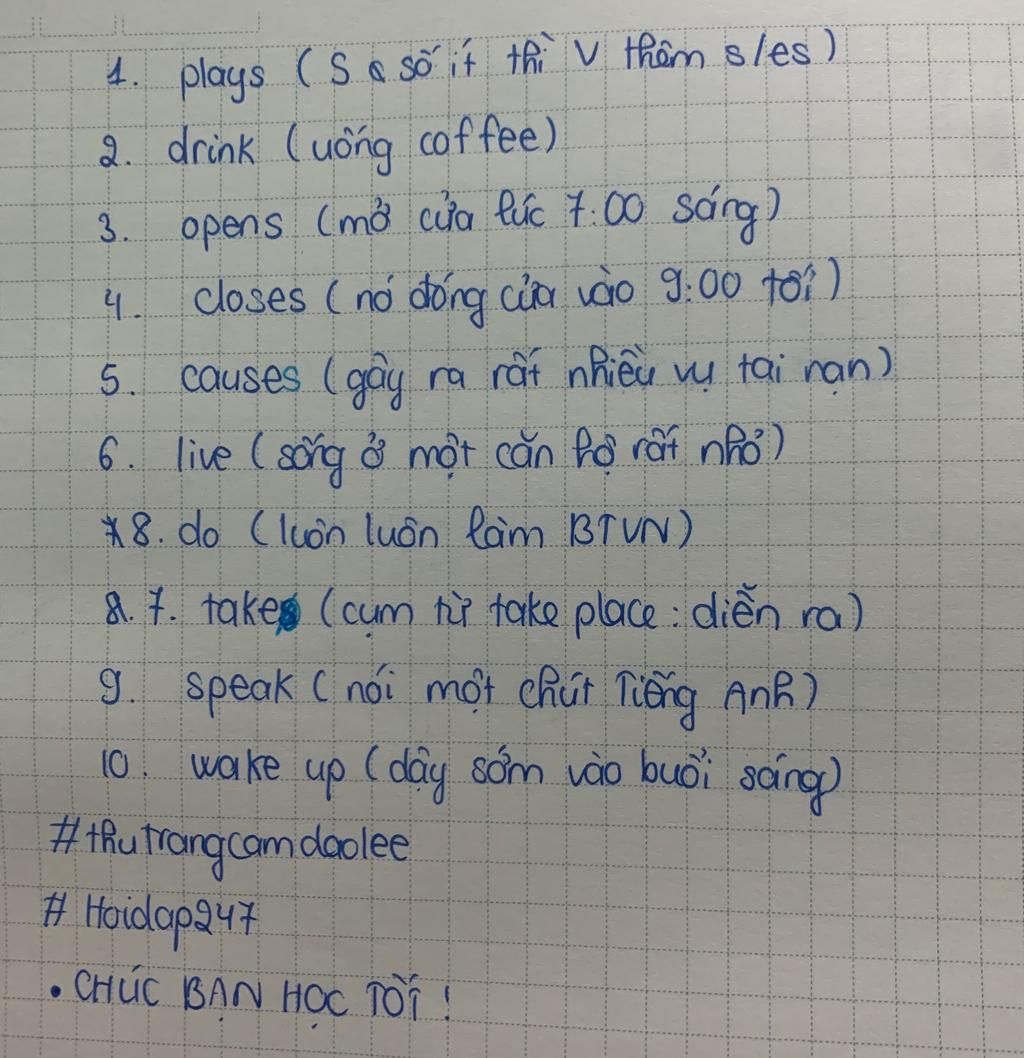 1. plays (S số ít thì V thêm s/es)
2. drink (uống coffee)
3. opens (mở cửa lúc 7:00 sáng)
4. closes (nó đóng cửa vào 9:00 tối)
5. causes (gây ra rất nhiều vụ tai nạn)
6. live (sống ở một căn hộ rất nhỏ)
8. do (luôn luôn làm BTVN)
7. takes (cụm từ take place : diễn ra)
9. speak (nói một chút Tiếng Anh)
10. wake up (dậy sớm vào buổi sáng)
#thutrangcamdaolee
# Hoidap247
• CHÚC BẠN HỌC TỐT !